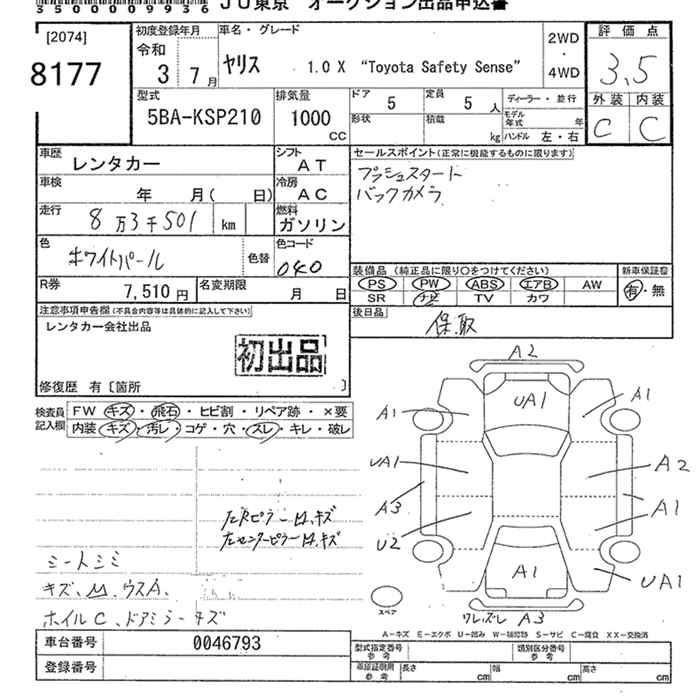 3500009936 JU東京 オークション出品申込書
[2074]
8177
初度登録年月
令和
3 7月
車名・グレード
ヤリス 1.0 X “Toyota Safety Sense”
2WD
・
4WD
評価点
3.5
外装 内装
C C
型式
5BA-KSP210
排気量
1000
CC
ドア 5
定員 5 人
ディーラー・並行
形状
積載 kg
モデル年式 年
ハンドル 左・右
車歴 レンタカー
シフト AT
車検 年 月( 日)
冷房 AC
走行 8万3千501 km
燃料 ガソリン
色 ホワイトパール
色替
色コード 040
R券 7,510 円
名変期限 月 日
セールスポイント(正常に機能するものに限ります)
プッシュスタート
バックカメラ
装備品 (純正品に限り○をつけてください)
PS PW ABS エアB AW
SR ナビ TV カワ
新車保証書
有・無
後日品 保、取
注意事項申告欄(不具合内容等は具体的に記入して下さい)
レンタカー会社出品
初出品
修復歴 有〔箇所 〕
検査員記入欄
FW キズ・飛石・ヒビ割・リペア跡・×要
内装 キズ・汚レ・コゲ・穴・スレ・キレ・破レ
左Rピラー凹、キズ
左センターピラー凹、キズ
シートシミ
キズ、凹、ウスA、
ホイルC、ドアミラーキズ
A2
A1 UA1 A1
UA1 A2
A3 A1
U2
A1 UA1
スペア
ワレ、ズレ A3
A－キズ E－エクボ U－凹み W－補修跡 S－サビ C－腐食 XX－交換済
車台番号 0046793
登録番号
型式指定番号
参考
類別区分番号
参考
車庫証明用
参考
長さ cm 幅 cm 高さ cm